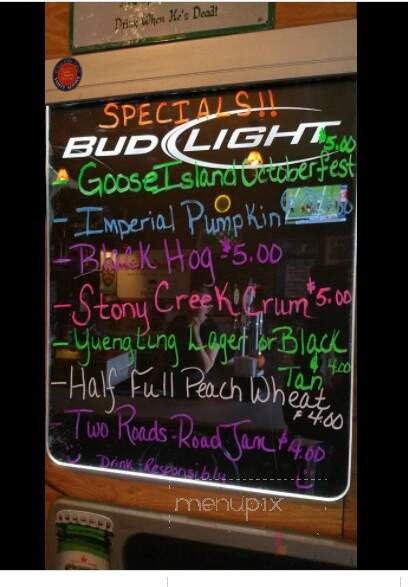 Drink When He's Dead!
SPECIALS!!
BUD LIGHT
$5.00
GooseIsland Octoberfest
- Imperial Pumpkin
- Black Hog $5.00
- Stony Creek Crum $5.00
- Yuengling Lager or Black
Tan $4.00
- Half Full Peach Wheat
$4.00
- Two Roads-Road Jam $4.00
Drink Responsibly
menupix